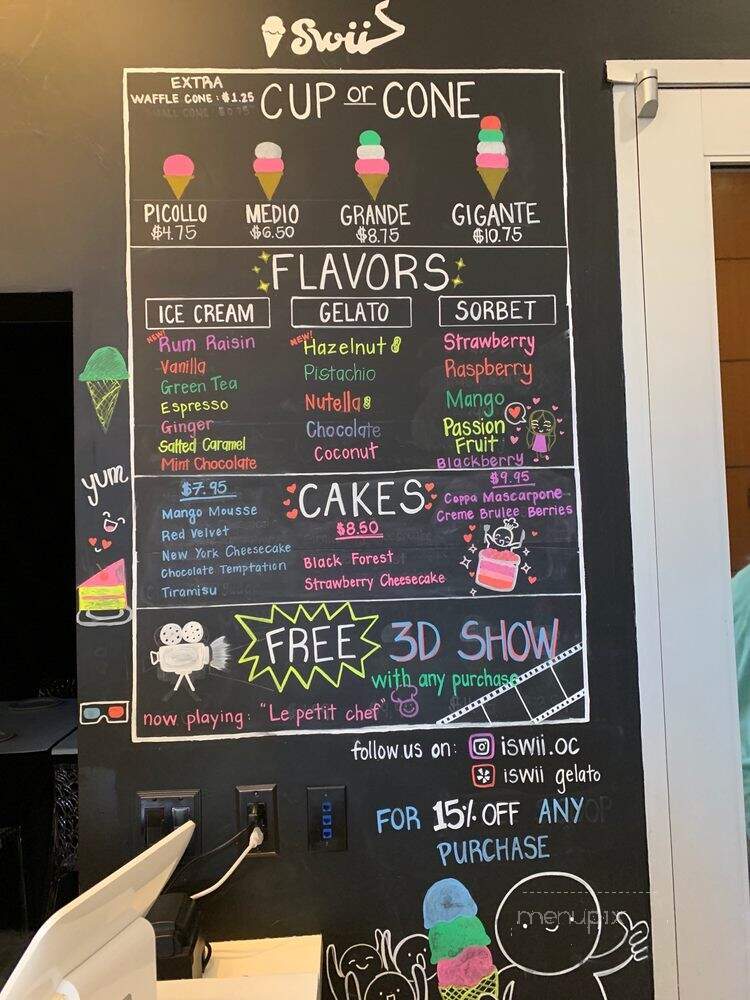 iswii
EXTRA
WAFFLE CONE: $1.25
SMALL CONE: $0.75
CUP or CONE
PICOLLO
$4.75
MEDIO
$6.50
GRANDE
$8.75
GIGANTE
$10.75
FLAVORS
ICE CREAM
NEW!
Rum Raisin
Vanilla
Green Tea
Espresso
Ginger
Salted Caramel
Mint Chocolate
GELATO
NEW!
Hazelnut
Pistachio
Nutella
Chocolate
Coconut
SORBET
Strawberry
Raspberry
Mango
Passion
Fruit
Blackberry
yum
CAKES
$7.95
Mango Mousse
Red Velvet
New York Cheesecake
Chocolate Temptation
Tiramisu
$8.50
Black Forest
Strawberry Cheesecake
$9.95
Coppa Mascarpone
Creme Brulee Berries
FREE 3D SHOW
with any purchase
now playing: "Le petit chef"
follow us on: iswii.oc
iswii gelato
FOR 15% OFF ANY
PURCHASE
menupix